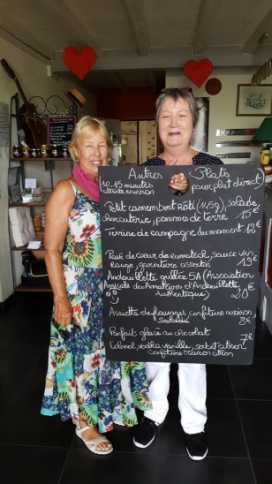 Autres Plats
10-15 minutes
pour plat direct)
Petit camembert Rôti (145g), salade,
charcuterie, pommes de terre 15€
Terrine de campagne du moment 12€
Pavé de coeur de rumsteck, sauce vin
rouge, garniture assortie 19€
Andouillette grillée 5A (Association
Amicale des Amateurs d'Andouillette
Authentique) 20€
Assiette de fromages confiture maison
salade
Parfait glacé au chocolat 7€
Colonel, vodka vanille, sorbet citron